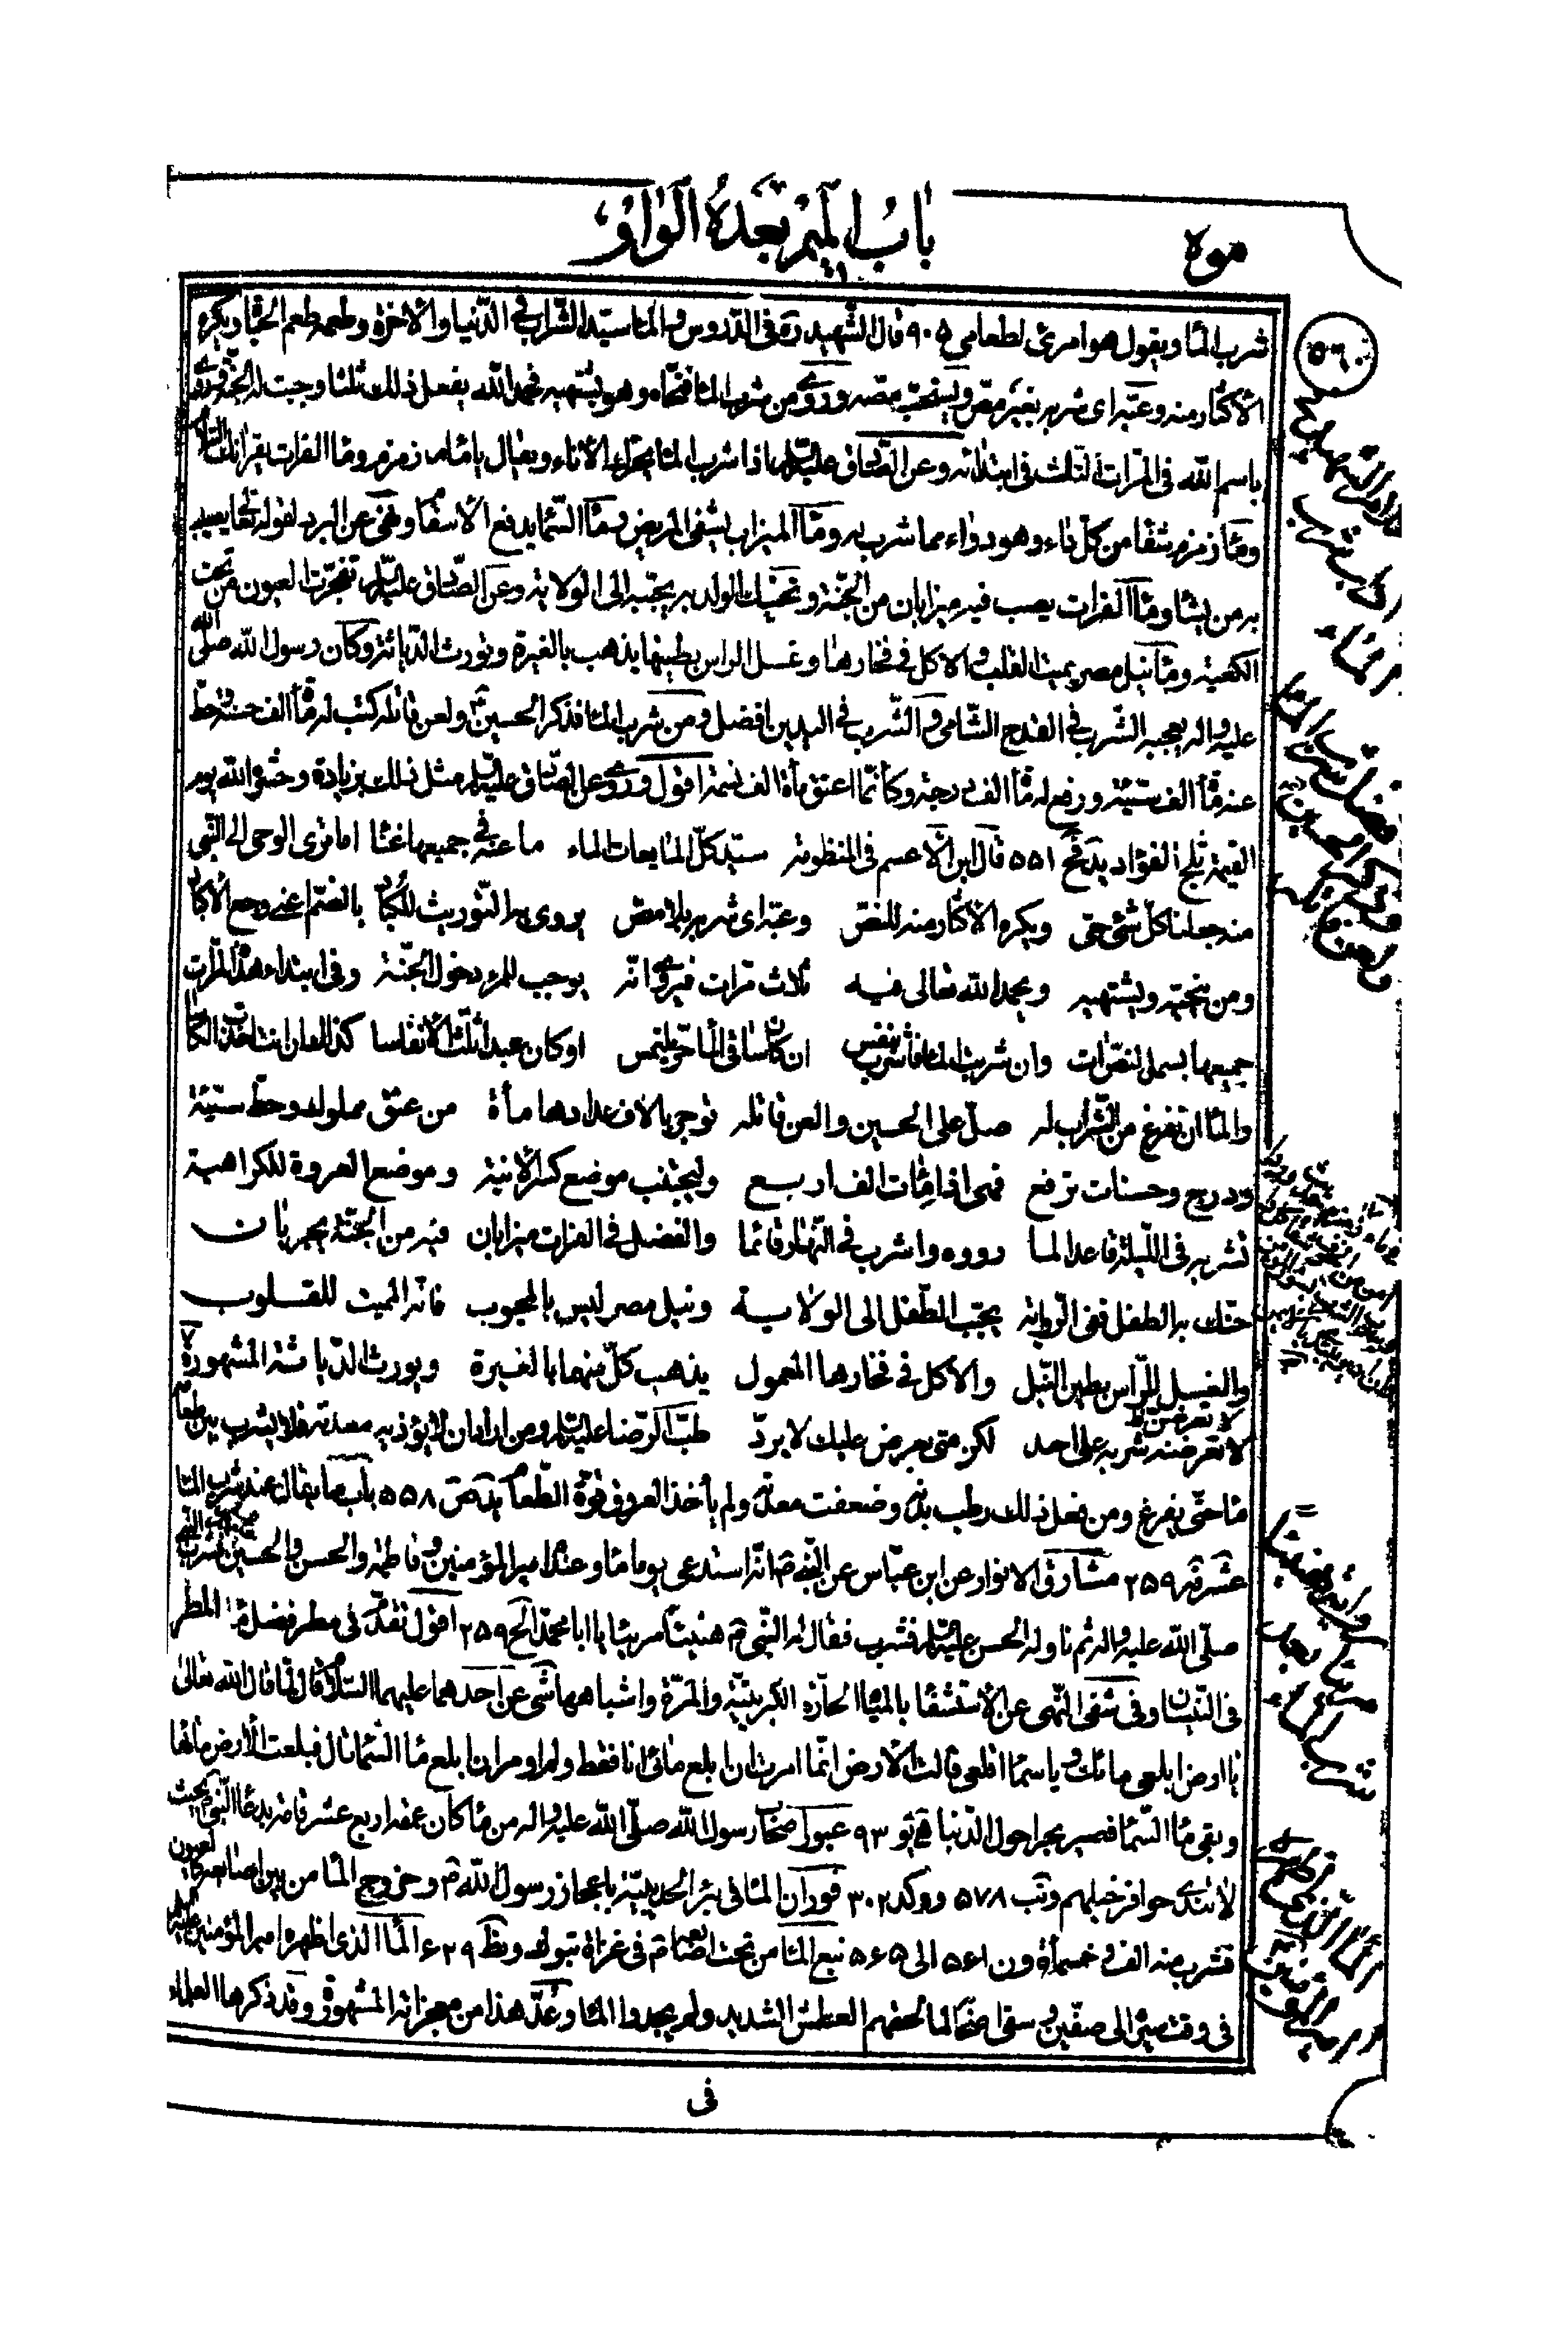 باب الميم بعده الواو
موه
٥٦٠
شرب الماء ويقول هو امرئ لطعامي ٩٠٥ قال الشهيد ره في الدروس والماء سيد الشراب في الدنيا والآخرة وطعمه طعم الحياة ويكره
الاكثار منه وعبه اى شربه بغير مص ويستحب مصه وروى من شرب الماء فنحاه وهو يشتهيه فحمد الله يفعل ذلك ثلثا وجبت له الجنة وروى
باسم الله في المرات الثلث في ابتدائه وعن الصادق عليه السلام اذا شرب الماء يحرك الاناء ويقال يا ماء زمزم وماء الفرات يقرئانك السلام
وماء زمزم شفاء من كل داء وهو دواء مما شرب له وماء الميزاب يشفي المريض وماء السماء يدفع الاسقام ونهى عن البرد لقوله تعالى يصيب
به من يشاء وماء الفرات يصب فيه ميزابان من الجنة وتحنيك الولد به يحببه الى الولاية وعن الصادق عليه السلام تفجرت العيون من تحت
الكعبة وماء نيل مصر يميت القلب والاكل في فخارها وغسل الراس بطينها يذهب بالغيرة ويورث الدياثة وكان رسول الله صلى الله
عليه واله يعجبه الشرب في القدح الشامي والشرب في اليدين افضل ومن شرب الماء فذكر الحسين ع ولعن قاتله كتب له مأة الف حسنة وحط
عنه مأة الف سيئة ورفع له مأة الف درجة وكأنما اعتق مأة الف نسمة اقول وروى عن الصادق عليه السلام مثل ذلك بزيادة وحشره الله يوم
القيمة ثلج الفؤاد يد قح ٥٥١ قال ابن الاعسم في المنظومة سيد كل المايعات الماء ما عنه في جميعها غناء اما ترى الوحى الى النبي
منه جعلنا كل شئ حى ويكره الاكثار منه للنص وعبه اى شربه بلا مص يروى به التوريث للكباد بالضم اعني وجع الاكباد
ومن ينحيه ويشتهيه ويحمد الله تعالى فيه ثلاث مرات فيروى انه يوجب للمرء دخول الجنة وفي ابتداء هذه المرات
جميعها بسمل لنص آت وان شربت الماء فاشرب بنفس ان كان ساقى الماء حرا يلتمس او كان عبدا ثلث الانفاسا كذا اذا انت اخذت الكاسا
والماء ان تفرغ من الشراب له صل على الحسين والعن قاتله توجر بالاف عدادها مأة من عتق مملوك وحط سيئة
ودرج وحسنات ترفع فهى اذا مئات الف اربع وليجتنب موضع كسر الانية وموضع العروة للكراهية
تشربه في الليلة قاعدا لما رووه واشرب في النهار قائما والفضل في الفرات ميزابان فيه من الجنة يجريان
حنك به الطفل ففي الرواية يحبب الطفل الى الولاية ونيل مصر ليس بالمحبوب فانه المميت للقلوب
والغسل للراس بطين النيل والاكل في فخارها المعمول يذهب كل منهما بالغيرة ويورث الدياثة المشهورة
لا تعرضن شربه على احد لكن متى يعرض عليك لا يرد طب الرضا عليه السلام ومن اراد ان لا يؤذيه معدته فلا يشرب بين طعامه
ماء حتى يفرغ ومن فعل ذلك رطب بدنه وضعفت معدته ولم يأخذ العروق قوة الطعام يد قص ٥٥٨ باب ما يقال عند شرب الماء
عشر قه ٢٥٩ مشارق الانوار عن ابن عباس عن النبي ص انه استدعى يوما ماء وعنده امير المؤمنين وفاطمة والحسن والحسين فشرب النبي
صلى الله عليه واله ثم ناوله الحسن عليه السلام فشرب فقال له النبي ص هنيئا مريئا يا ابا محمد الخ ٢٥٩ اقول تقدم في مطر فضل ماء المطر
في النيسان وفي شفى النهى عن الاستشفاء بالمياه الحارة الكبريتية والمرة واشباهها شى عن احدهما عليهما السلام قال لما قال الله تعالى
يا ارض ابلعى ماءك ويا سماء اقلعى قالت الارض انما امرت ان ابلع مائى انا فقط ولم اومر ان ابلع ماء السماء قال فبلعت الارض ماءها
وبقى ماء السماء فصير بحرا حول الدنيا ه يو ٩٣ عبور صحاب رسول الله صلى الله عليه واله من ماء كان عمقه اربع عشر قامة بدعاء النبي بحيث
لا تندى حوافر خيلهم وتب ٥٧٨ و وكد ٣٠٢ فوران الماء في بئر الحديبية باعجاز رسول الله ص وخروج الماء من بين اصابعه كالعيون
فشرب منه الف وخمسمأة ون ٥٦١ الى ٥٦٥ نبع الماء من تحت اصابعه ص في غزاة تبوك وبظ ٤٢٩ الماء الذي اظهره امير المؤمنين عليه السلام
في وقت مسيره الى صفين وسقى اصحابه لما لحقهم العطش الشديد ولم يجدوا الماء وعد هذا من معجزاته المشهورة وقد ذكرها العلماء
في